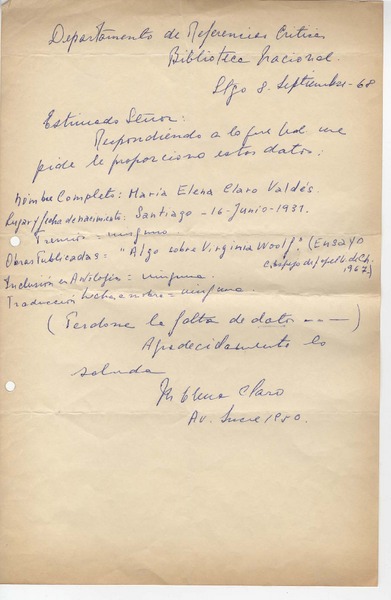 Departamento de Referencias Críticas
Biblioteca Nacional.
Stgo 8. Septiembre - 68
Estimado Señor:
Respondiendo a lo que Ud me
pide le proporciono estos datos:
Nombre Completo: María Elena Claro Valdés.
Lugar y fecha de nacimiento: Santiago - 16 - Junio - 1931.
Premios = ninguno
Obras Publicadas: "Algo sobre Virginia Woolf". (Ensayo
1967)
Inclusión en Antologías = ninguna
Traducción hecha = ninguna
(Perdone la falta de datos - - -)
Agradecidamente lo
saluda
M Elena Claro
Av. Sucre 1950.